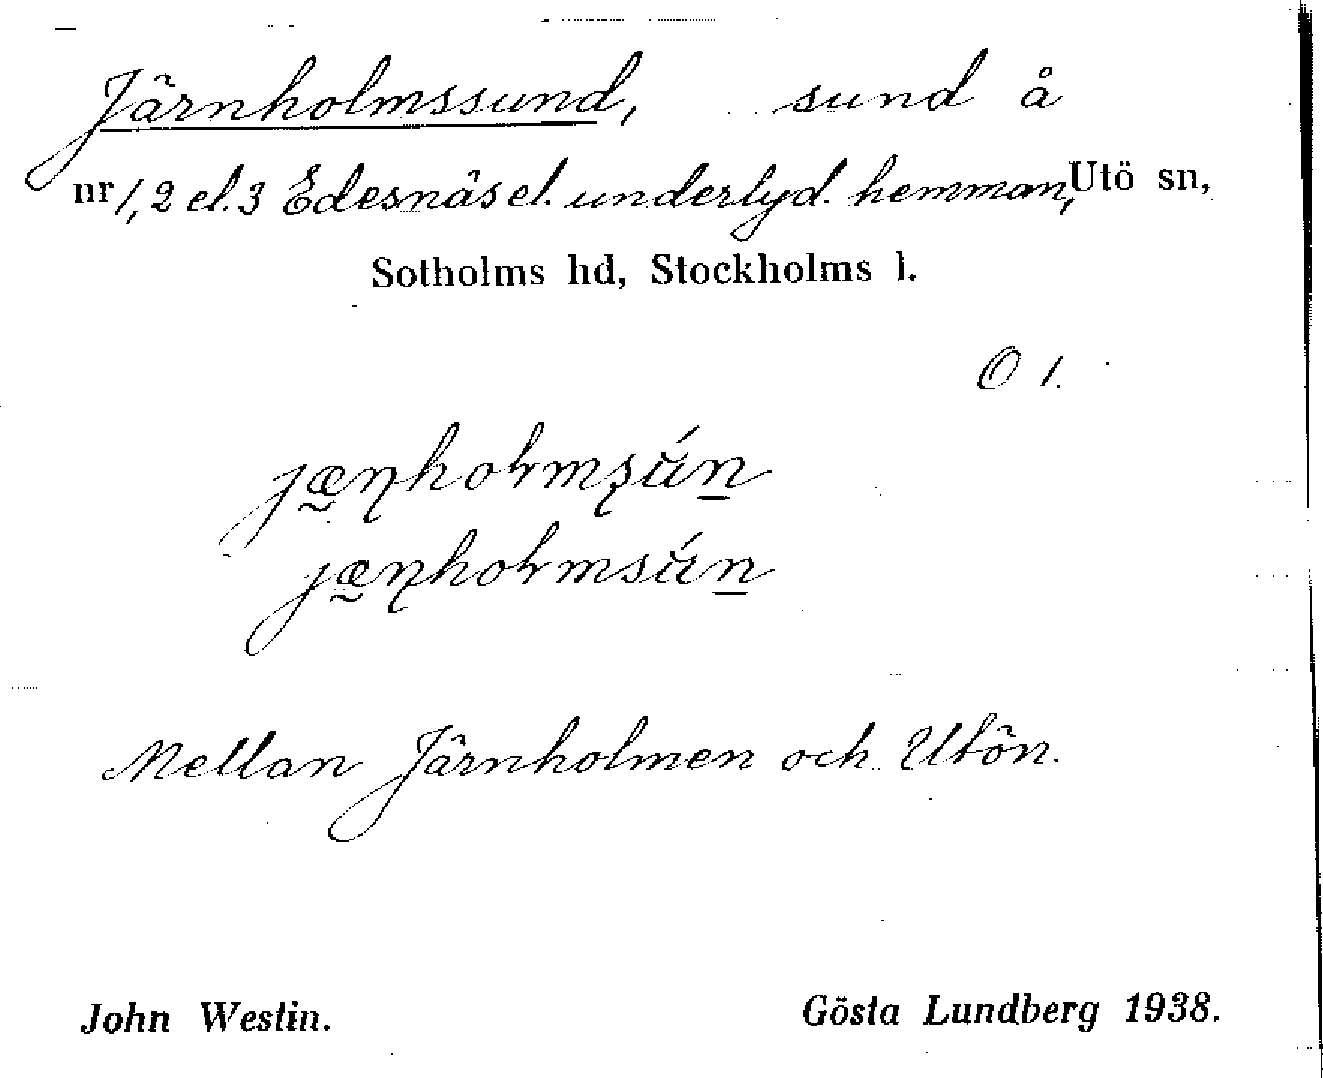 Järnholmssund, sund å
nr 1, 2 el. 3 Edesnäs el. underlyd. hemman, Utö sn,
Sotholms hd, Stockholms l.
O 1.
Mellan Järnholmen och Utön.
John Westin. Gösta Lundberg 1938.